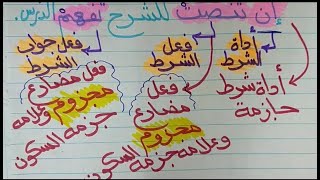 إن تنصت للشرح تفهم الدرس.
أداة الشرط
فعل الشرط
فعل جواب الشرط
أداة شرط جازمة
فعل مضارع مجزوم وعلامه جزمه السكون
فعل مضارع مجزوم وعلامه جزمه السكون